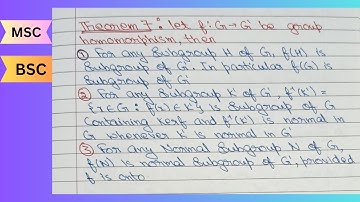 MSC
BSC
Theorem 7: let f: G→G' be group
homomorphism, then
① For any Subgroup H of G, f(H) is
Subgroup of G'. In particular f(G) is
Subgroup of G'
② For any Subgroup K' of G', f⁻¹(K') =
{x∈G: f(x)∈K'} is Subgroup of G
Containing Kerf and f⁻¹(K') is normal in
G whenever K' is normal in G'
③ For any Normal Subgroup N of G,
f(N) is normal Subgroup of G', provided
f is onto.